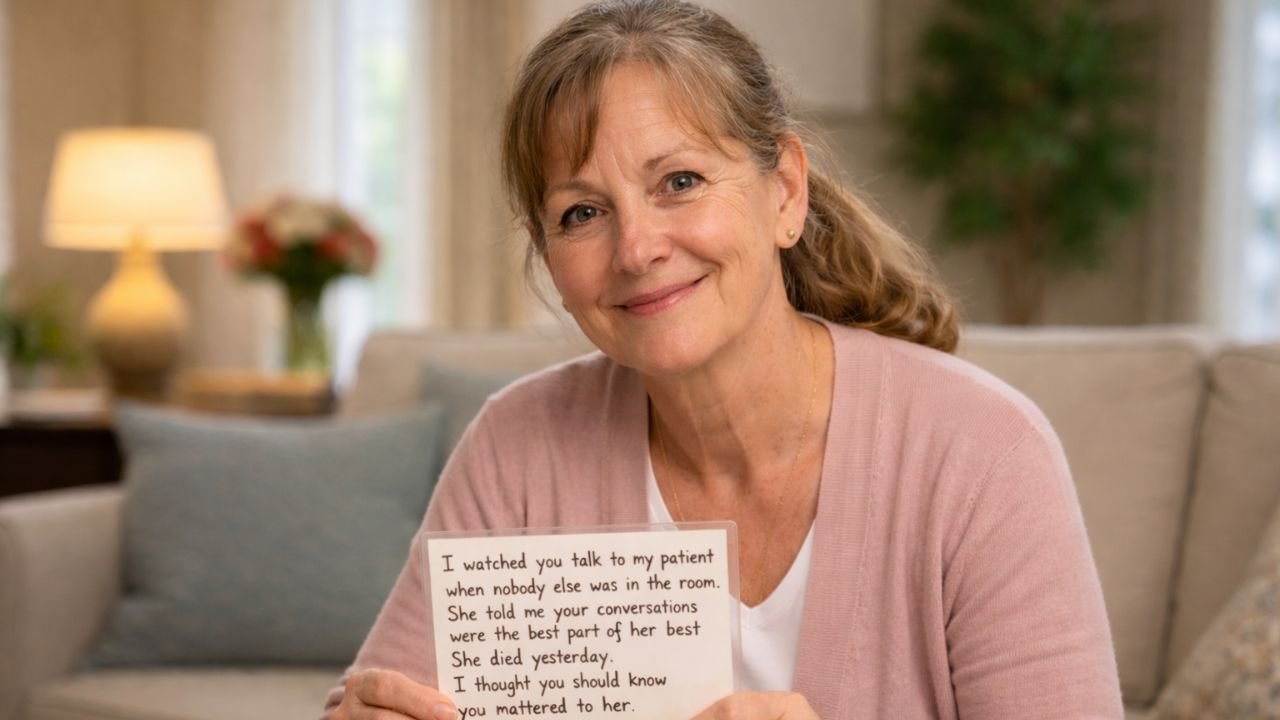 I watched you talk to my patient
when nobody else was in the room.
She told me your conversations
were the best part of her best
She died yesterday.
I thought you should know
you mattered to her.